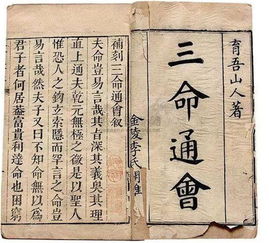 育吾山人著
三命通會
金陵李氏
補刻三命通會敘
夫命豈易言哉其旨深其義奧其理
直上通夫乾元無極之後是以聖人
惟恐人之鈎玄索隱而罕言之命豈
易言哉然夫子又曰不知命無以爲
君子者何居葢富貴利達命也困窮